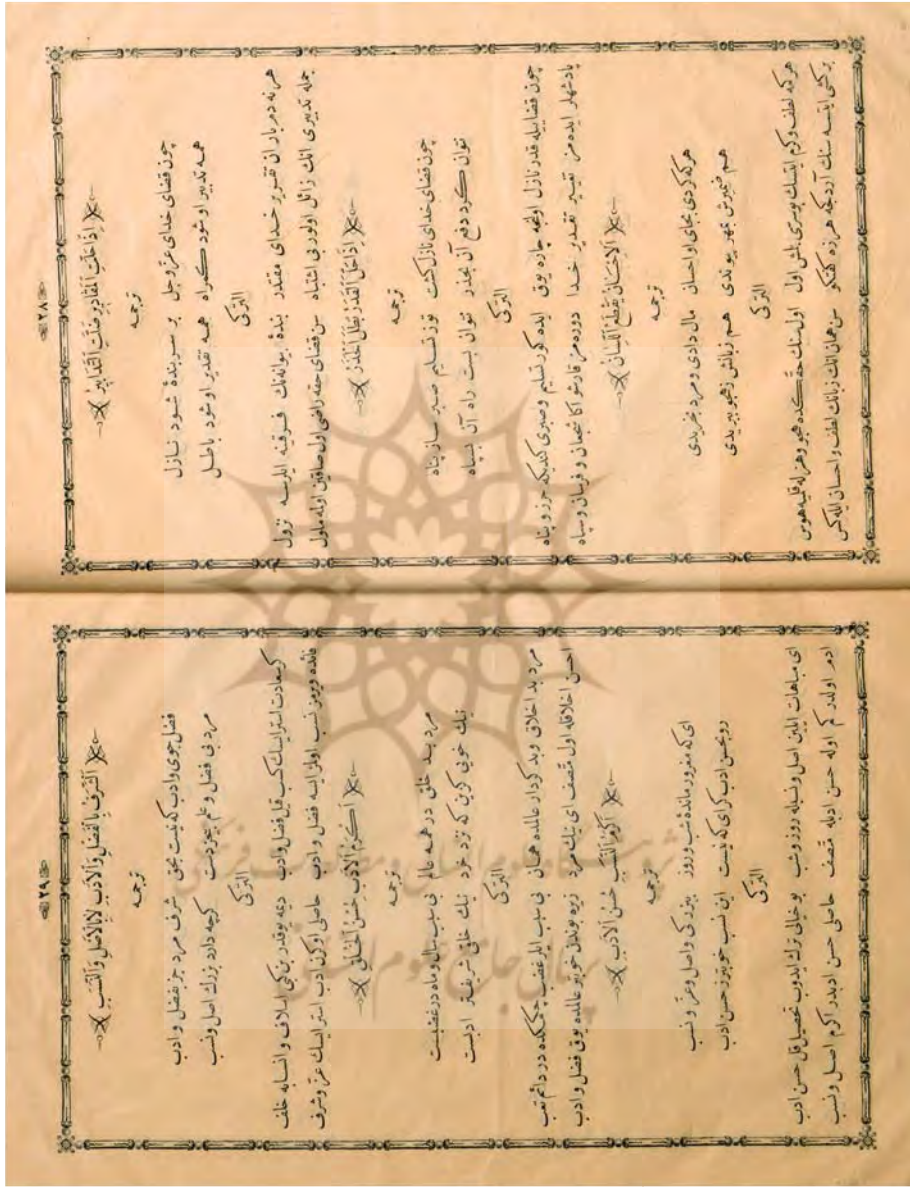 ﴿٢٨﴾
اِذَا حَلَّتِ الْمَقَادِيرُ ضَلَّتِ التَّدَابِيرُ
ترجمه
چون قضای خدای عزّ وجل بر سر بندهٔ شود نازل
همه تدبیر او شود گمراه همه تقدیر او شود باطل
الترکی
هر نه دم یاران تقدیر خدای مقتدر بندهٔ بیوانه‌نک فرقینه ایلرسه نزول
جمله تدبیری انك زائل اولور بی اشتباه سن قضای حقه راضی اول صاقین اوله ملول
اِذَا حَلَّ الْقَدَرُ بَطَلَ الْحَذَرُ
ترجمه
چون قضای خدای نازل گشت تو ز تسلیم صبر ساز پناه
نتوان کرد دفع آن بحذر نتوان بست راه آن بسپاه
الترکی
چون قضا ایله قدر نازل اولنجه چاره یوق ایده کور تسلیم وصبری کندیکه حرز و پناه
پادشهلر ایده‌مز تغییر تقدیر خدا دوره‌مز قارشو اکا شجعان و فرسان و سپاه
اَلْاِحْسَانُ یَقْطَعُ اللِّسَانَ
ترجمه
هر که کردی بجای او احسان مال دادی و مرد بخریدی
هم ضمیرش بمهر پیوندی هم زبانش ز هجو ببریدی
الترکی
هر که لطف وکرم ایتسك اول سنك حقكده هجو وهزله قلمیه هوس
بر کشی ایتسه سنك آردكجه هرزه کفتکو سن همان انك زبانك لطف واحسان ایله کس
﴿٢٩﴾
اَلشَّرَفُ بِالْفَضْلِ وَالْاَدَبِ لَا بِالْاَصْلِ وَالنَّسَبِ
ترجمه
فضل جوی وادب که نیست بحق شرف مرد جز بفضل و ادب
مرد بی فضل و علم بیخردست گرچه دارد بزرك اصل ونسب
الترکی
گر سعادت استرایسك کسب قیل فضل وادب
فائده ویرمز نسب اولمز ایسه فضل و ادب حاصلی اوکرن ادب استرایسك عزّ وشرف
اَکْرَمُ الْاَدَبِ حُسْنُ الْخُلُقِ
ترجمه
مرد بد خلق در همه عالم بی سبب سال وماه در غضبست
نیك خویی گزین که نزد خرد نیك خلق شریفتر ادبست
الترکی
مرد بد اخلاق وبد کردار عالمده همان بی سبب ایلر غضب چکمکده در دائم تعب
احسن اخلاقله اول متصف ای نیك مرد زیره بوندن خوبیر عالمده یوق فضل و ادب
اَکْرَمُ النَّسَبِ حُسْنُ الْاَدَبِ
ترجمه
ای که مغرور ماندهٔ شب وروز ببزرکی واصل وعزّ و نسب
رو بحسن ادب گرای که نیست این نسب خوبتر ز حسن ادب
الترکی
ای مباهات ایلین اصل ونسبله روز وشب بو خیالی ترك ایدوب تحصیل قل حسن ادب
ادم اولدر کم اوله حسن ادبله متصف حاصلی حسن ادبدر اکرم اصل و نسب